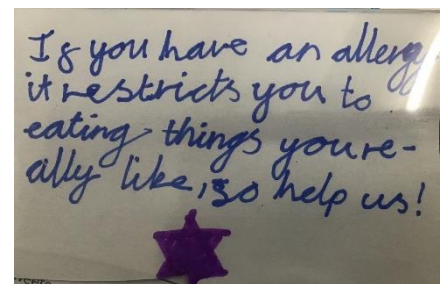 If you have an allergy
it restricts you to
eating things youre-
ally like, so help us!